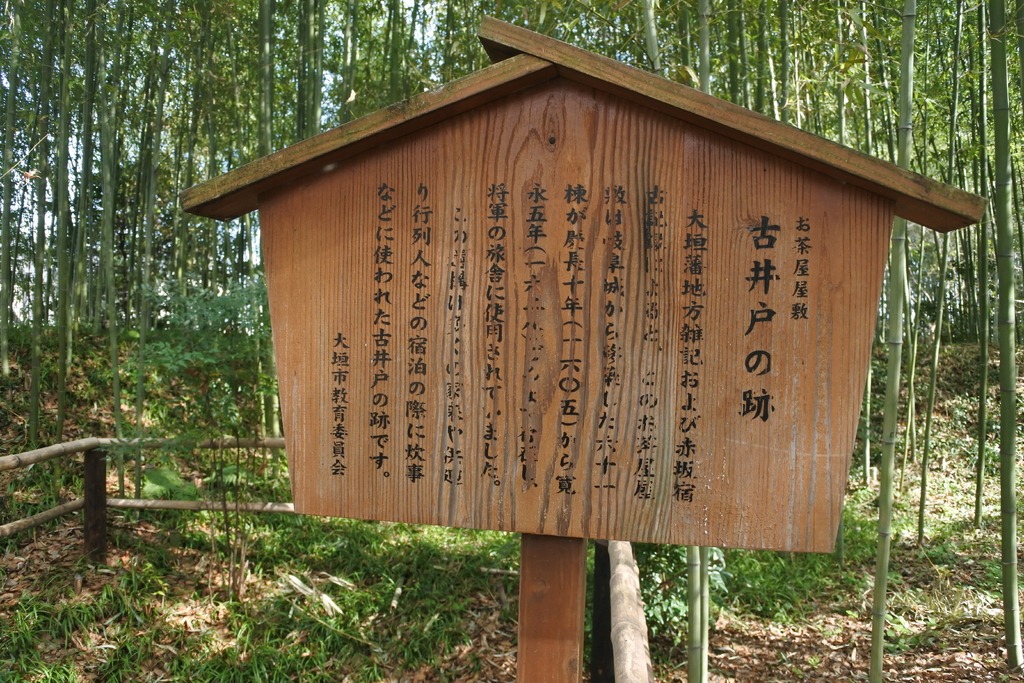 お茶屋屋敷
古井戸の跡
大垣藩地方雑記および赤坂宿
古記録によると、このお茶屋屋
敷は岐阜城から移築した六十一
棟が慶長十年(一六〇五)から寛
永五年(一六二八)
将軍の旅舎に使用されていました。
この
り行列人などの宿泊の際に炊事
などに使われた古井戸の跡です。
大垣市教育委員会